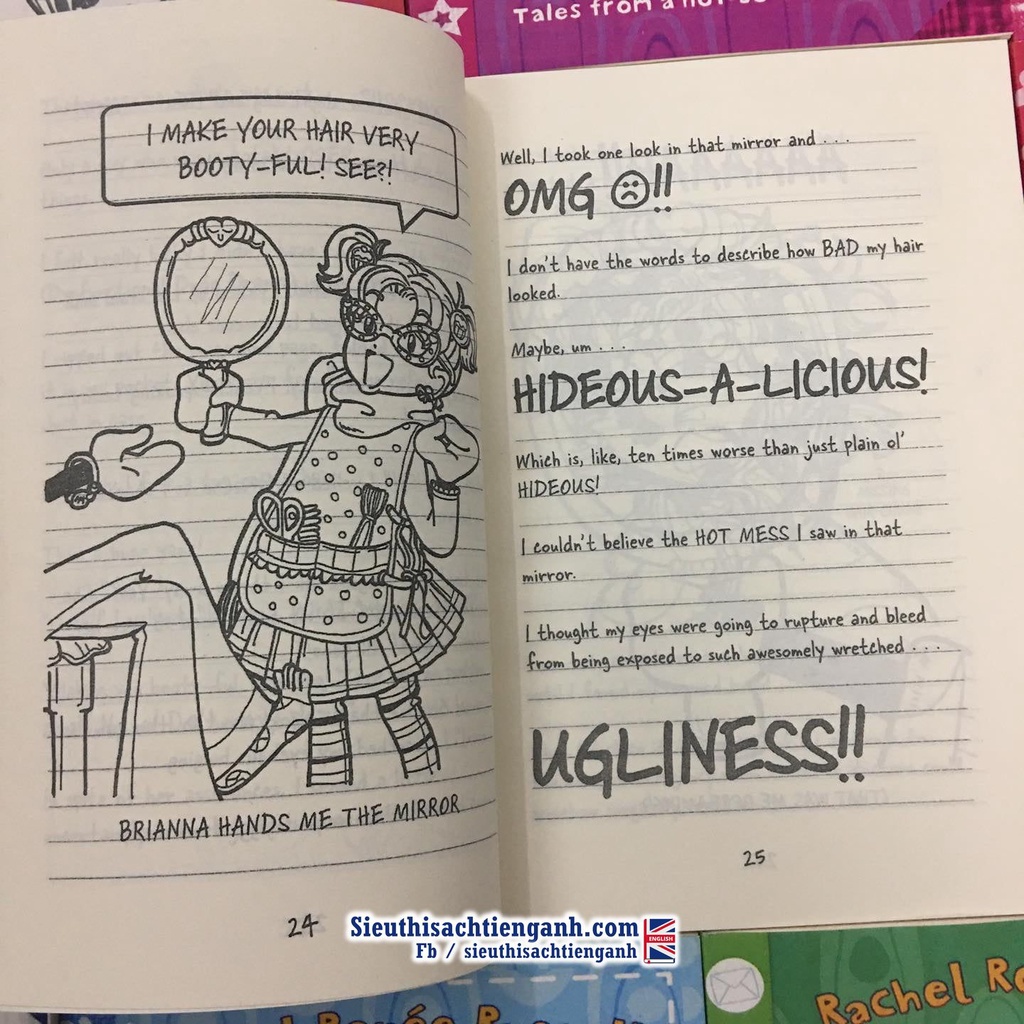 Tales from a
I MAKE YOUR HAIR VERY
BOOTY-FUL! SEE?!
BRIANNA HANDS ME THE MIRROR
24
Well, I took one look in that mirror and . . .
OMG ☹!!
I don't have the words to describe how BAD my hair
looked.
Maybe, um . . .
HIDEOUS-A-LICIOUS!
Which is, like, ten times worse than just plain ol'
HIDEOUS!
I couldn't believe the HOT MESS I saw in that
mirror.
I thought my eyes were going to rupture and bleed
from being exposed to such awesomely wretched . . .
UGLINESS!!
25
Sieuthisachtienganh.com
ENGLISH
Fb / sieuthisachtienganh
Rachel